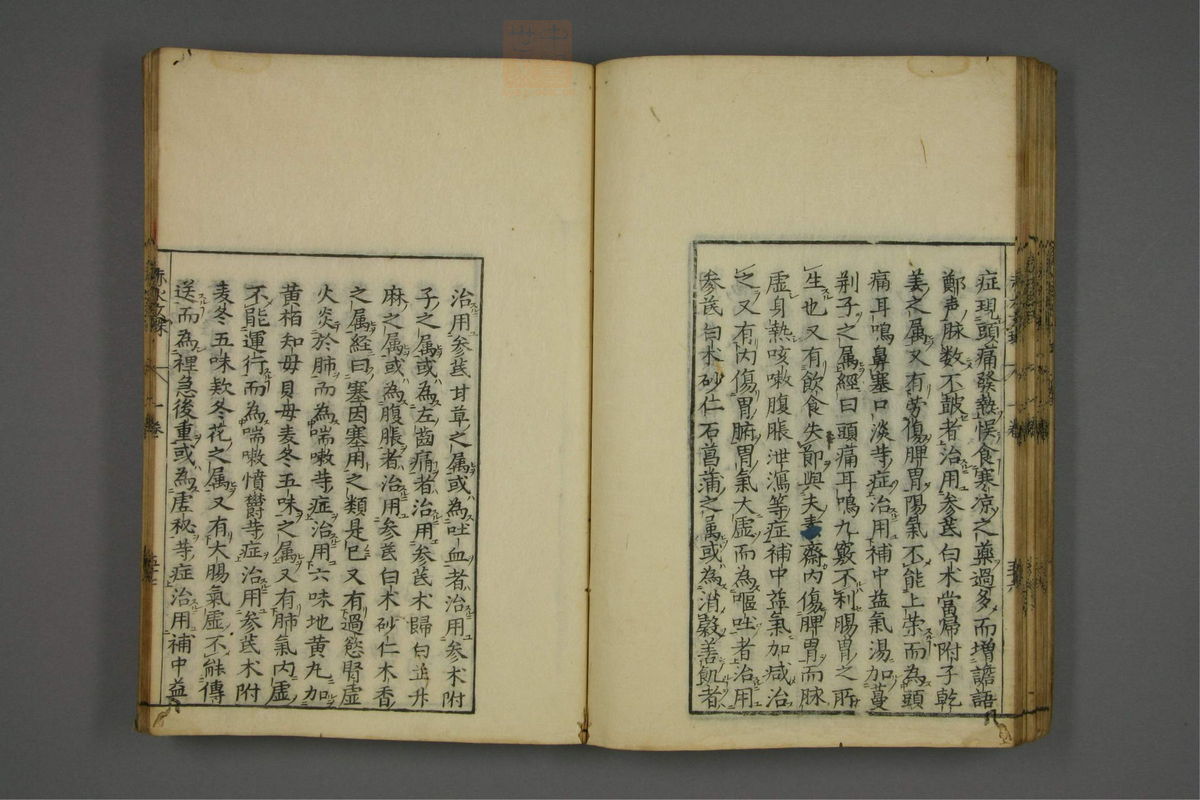 症現頭痛發熱悞食寒凉之藥過多而增譫語
鄭声脉数不皷者治用参芪白术當帰附子乾
姜之属又有劳傷脾胃陽氣不能上荣而為頭
痛耳鳴鼻塞口淡等症治用補中益氣湯加蔓
荆子之属經曰頭痛耳鳴九竅不利腸胃之所
生也又有飲食失節與夫素齋内傷脾胃而脉
虚身熱咳嗽腹脹泄瀉等症補中益氣加减治
之又有内傷胃腑胃氣大虚而為嘔吐者治用
参芪白术砂仁石菖蒲之属或為消穀善飢者
治用参芪甘草之属或為吐血者治用参术附
子之属或為左齒痛者治用参芪术歸白芷升
麻之属或為腹脹者治用参芪白术砂仁木香
之属經曰塞因塞用之類是已又有過慾腎虚
火炎於肺而為喘嗽等症治用六味地黄丸加
黄栢知母貝母麦冬五味之属又有肺氣内虚
不能運行而為喘嗽憤欝等症治用参芪术附
麦冬五味款冬花之属又有大腸氣虚不能傳
送而為裡急後重或為虚秘等症治用補中益